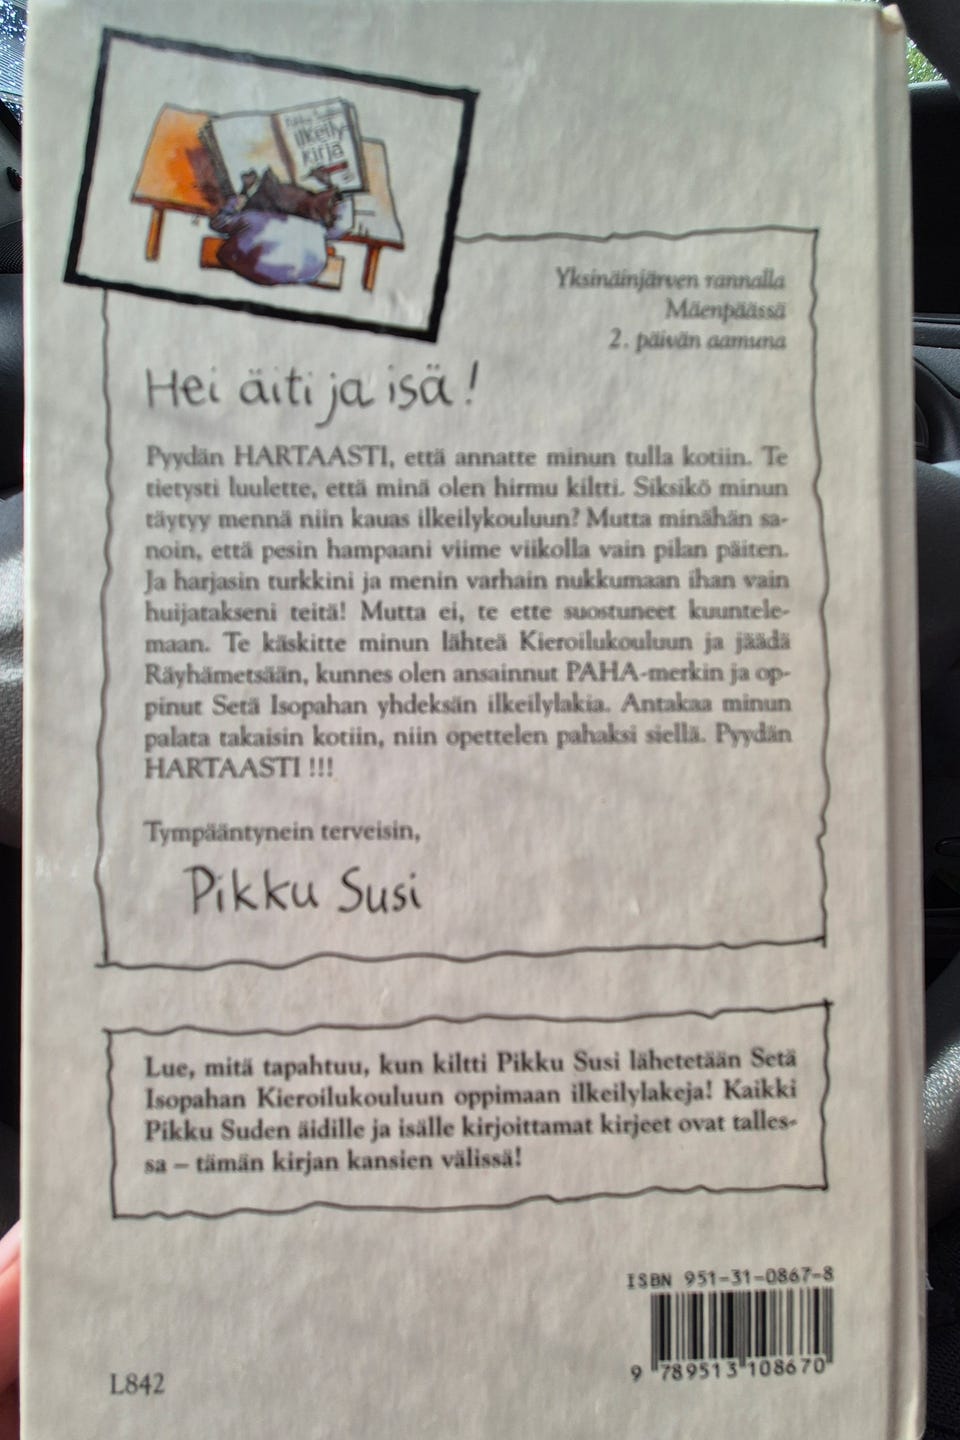 Pikku Suden
ilkeily-
kirja
Yksinäinjärven rannalla
Mäenpäässä
2. päivän aamuna
Hei äiti ja isä!
Pyydän HARTAASTI, että annatte minun tulla kotiin. Te
tietysti luulette, että minä olen hirmu kiltti. Siksikö minun
täytyy mennä niin kauas ilkeilykouluun? Mutta minähän sa-
noin, että pesin hampaani viime viikolla vain pilan päiten.
Ja harjasin turkkini ja menin varhain nukkumaan ihan vain
huijatakseni teitä! Mutta ei, te ette suostuneet kuuntele-
maan. Te käskitte minun lähteä Kieroilukouluun ja jäädä
Räyhämetsään, kunnes olen ansainnut PAHA-merkin ja op-
pinut Setä Isopahan yhdeksän ilkeilylakia. Antakaa minun
palata takaisin kotiin, niin opettelen pahaksi siellä. Pyydän
HARTAASTI !!!
Tympääntynein terveisin,
Pikku Susi
Lue, mitä tapahtuu, kun kiltti Pikku Susi lähetetään Setä
Isopahan Kieroilukouluun oppimaan ilkeilylakeja! Kaikki
Pikku Suden äidille ja isälle kirjoittamat kirjeet ovat talles-
sa – tämän kirjan kansien välissä!
ISBN 951-31-0867-8
9 789513 108670
L842